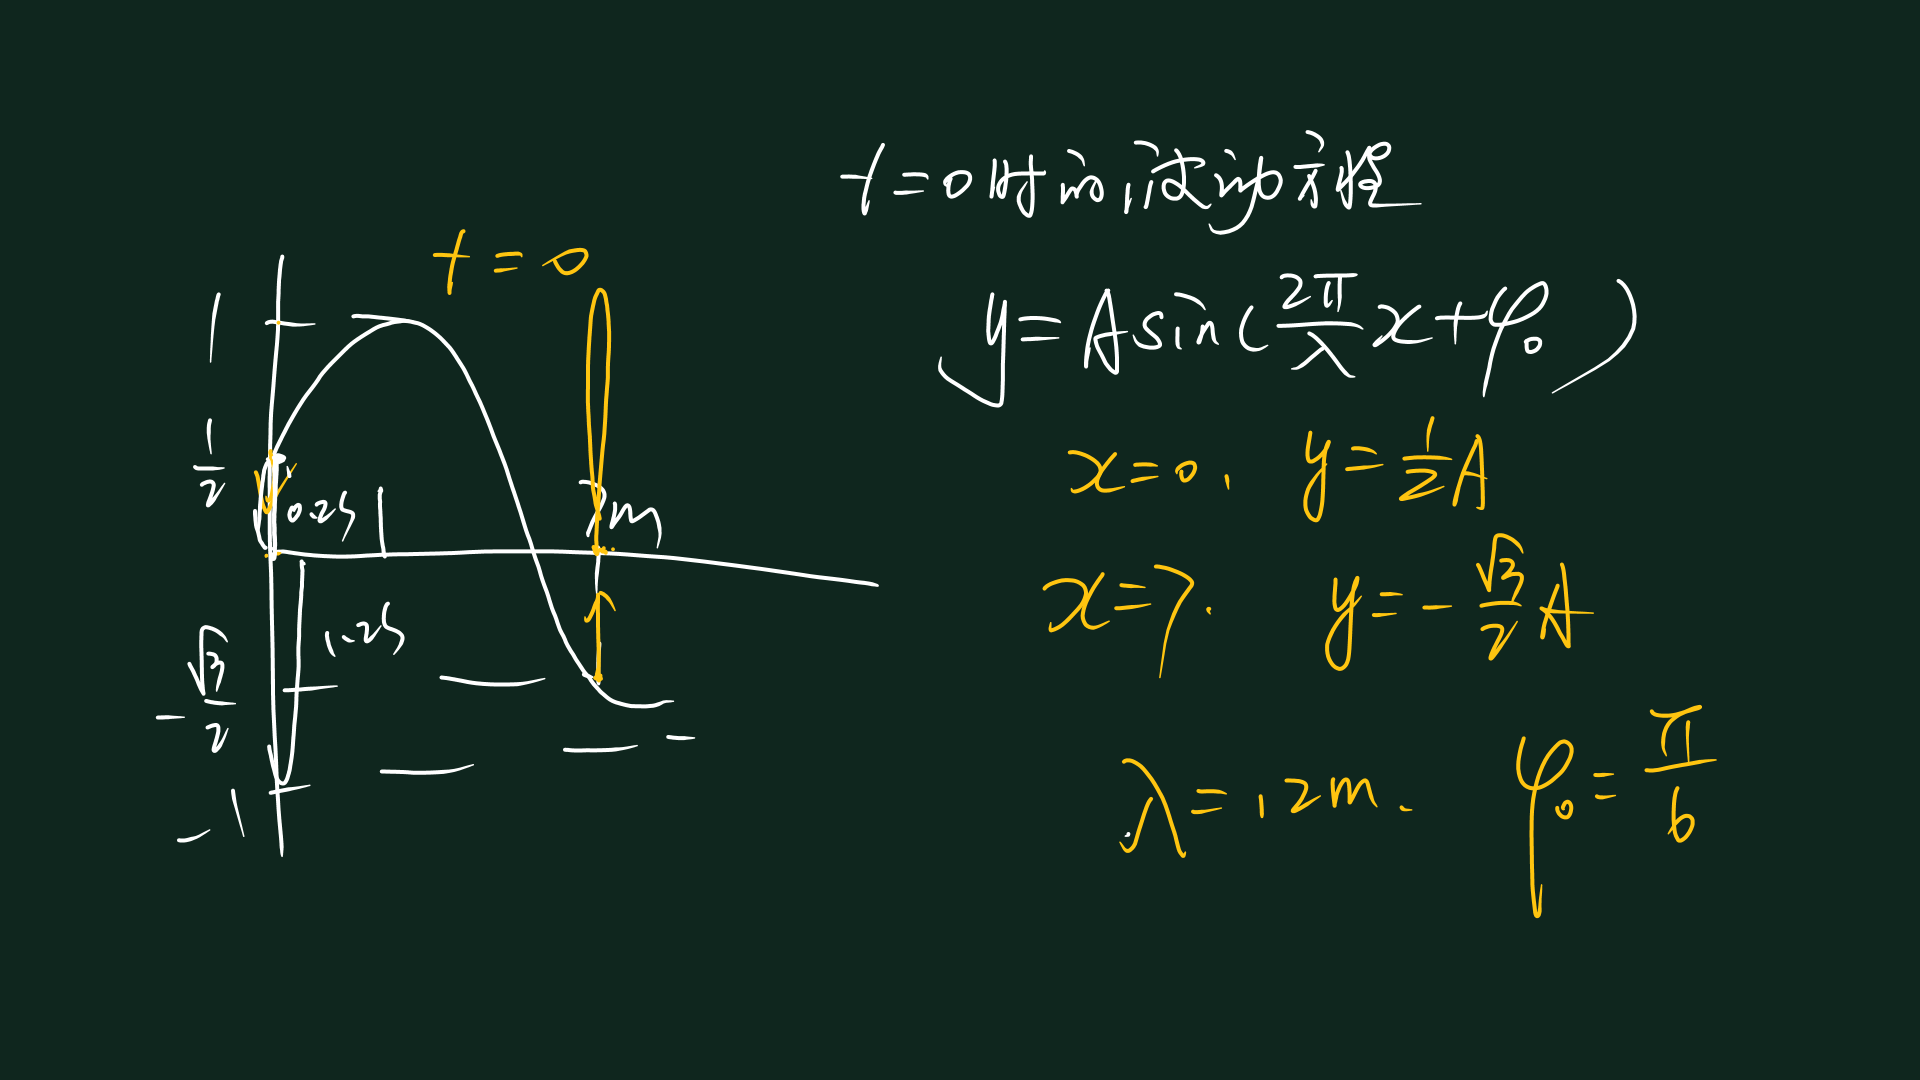 t=0时的波动方程
y=Asin(2π/λ x+φ₀)
x=0, y=1/2 A
x=7. y=-√3/2 A
λ=12m. φ₀=π/6
t=0
1
1/2
0.2s
7m
1.2s
-√3/2
-1